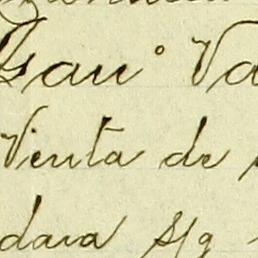 Gauº Va
Venta de
dara s/g